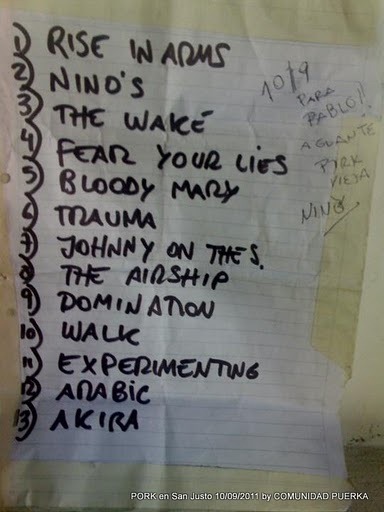 1) RISE IN ARMS
2) NINO'S
3) THE WAKE
4) FEAR YOUR LIES
5) BLOODY MARY
6) TRAUMA
7) JOHNNY ON THE S.
8) THE AIRSHIP
9) DOMINATION
10) WALK
11) EXPERIMENTING
12) ARABIC
13) AKIRA
10/9
PARA
PABLO!!
AGUANTE
PORK
VIEJA
NINO
PORK en San Justo 10/09/2011 by COMUNIDAD PUERKA